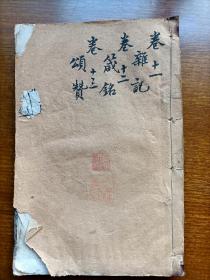 卷十一
雜記
卷十二
箴銘
卷十三
頌贊